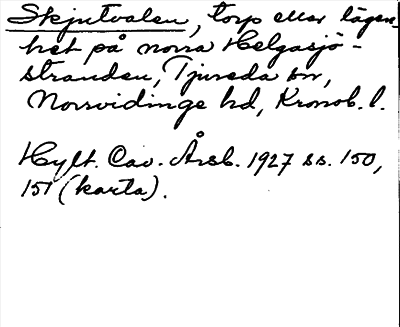 Skjutvalen, torp eller lägen-
het på norra Helgasjö-
stranden, Tjureda sn,
Norrvidinge hd, Kronob. l.
Hylt. Cav. Årsb. 1927 ss. 150,
151 (karta).